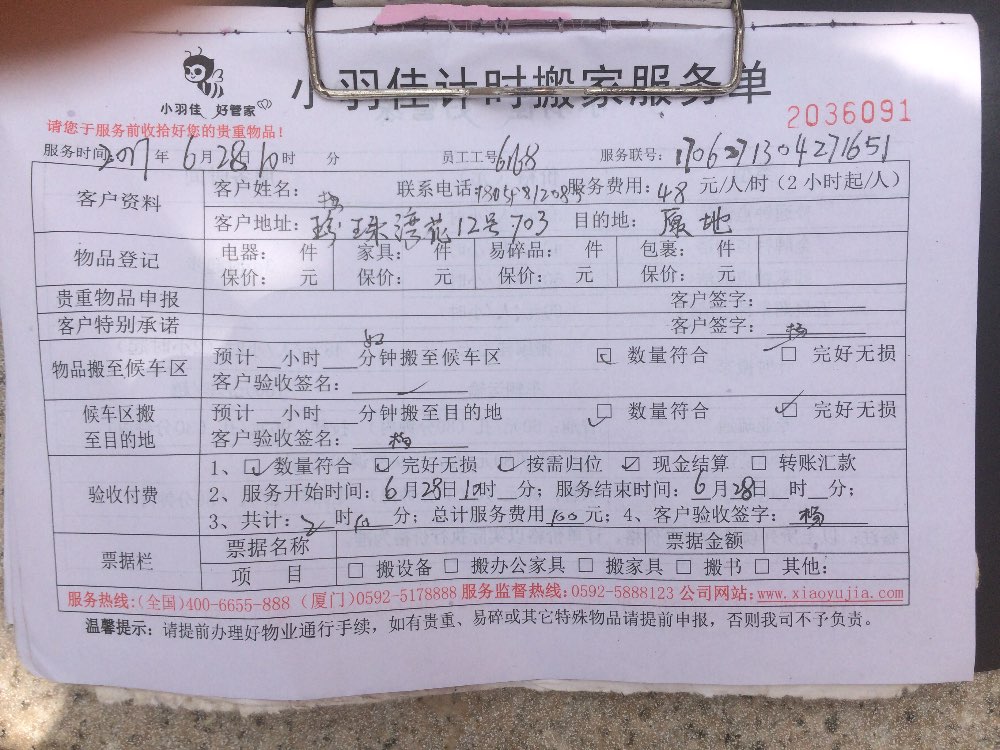 小羽佳 好管家
小羽佳计时搬家服务单
2036091
请您于服务前收拾好您的贵重物品!
服务时间 2017年6月28日10时 分 员工工号6168 服务联号:1706271304271651
客户资料 客户姓名:杨 联系电话: 服务费用:48元/人/时(2小时起/人)
客户地址:珍珠湾花12号703 目的地:原地
物品登记 电器: 件 家具: 件 易碎品: 件 包裹: 件
保价: 元 保价: 元 保价: 元 保价: 元
贵重物品申报 客户签字:
客户特别承诺 客户签字:杨
物品搬至候车区 预计__小时__分钟搬至候车区 ☑ 数量符合 □ 完好无损
客户验收签名:
候车区搬至目的地 预计__小时__分钟搬至目的地 ☑ 数量符合 ☑ 完好无损
客户验收签名:杨
验收付费 1、☑数量符合 ☑完好无损 ☑按需归位 ☑现金结算 □转账汇款
2、服务开始时间:6月28日10时__分;服务结束时间:6月28日__时__分;
3、共计:2时10分;总计服务费用100元;4、客户验收签字:杨
票据栏 票据名称 票据金额
项 目 □搬设备 □搬办公家具 □搬家具 □搬书 □其他:
服务热线:(全国)400-6655-888(厦门)0592-5178888 服务监督热线:0592-5888123 公司网站:www.xiaoyujia.com
温馨提示:请提前办理好物业通行手续,如有贵重、易碎或其它特殊物品请提前申报,否则我司不予负责。